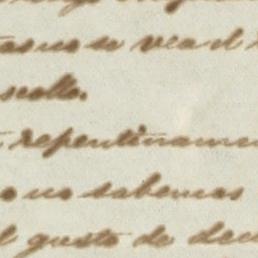 no se vea el
sello.
repentinamen
o no sabemos
el gusto de dec